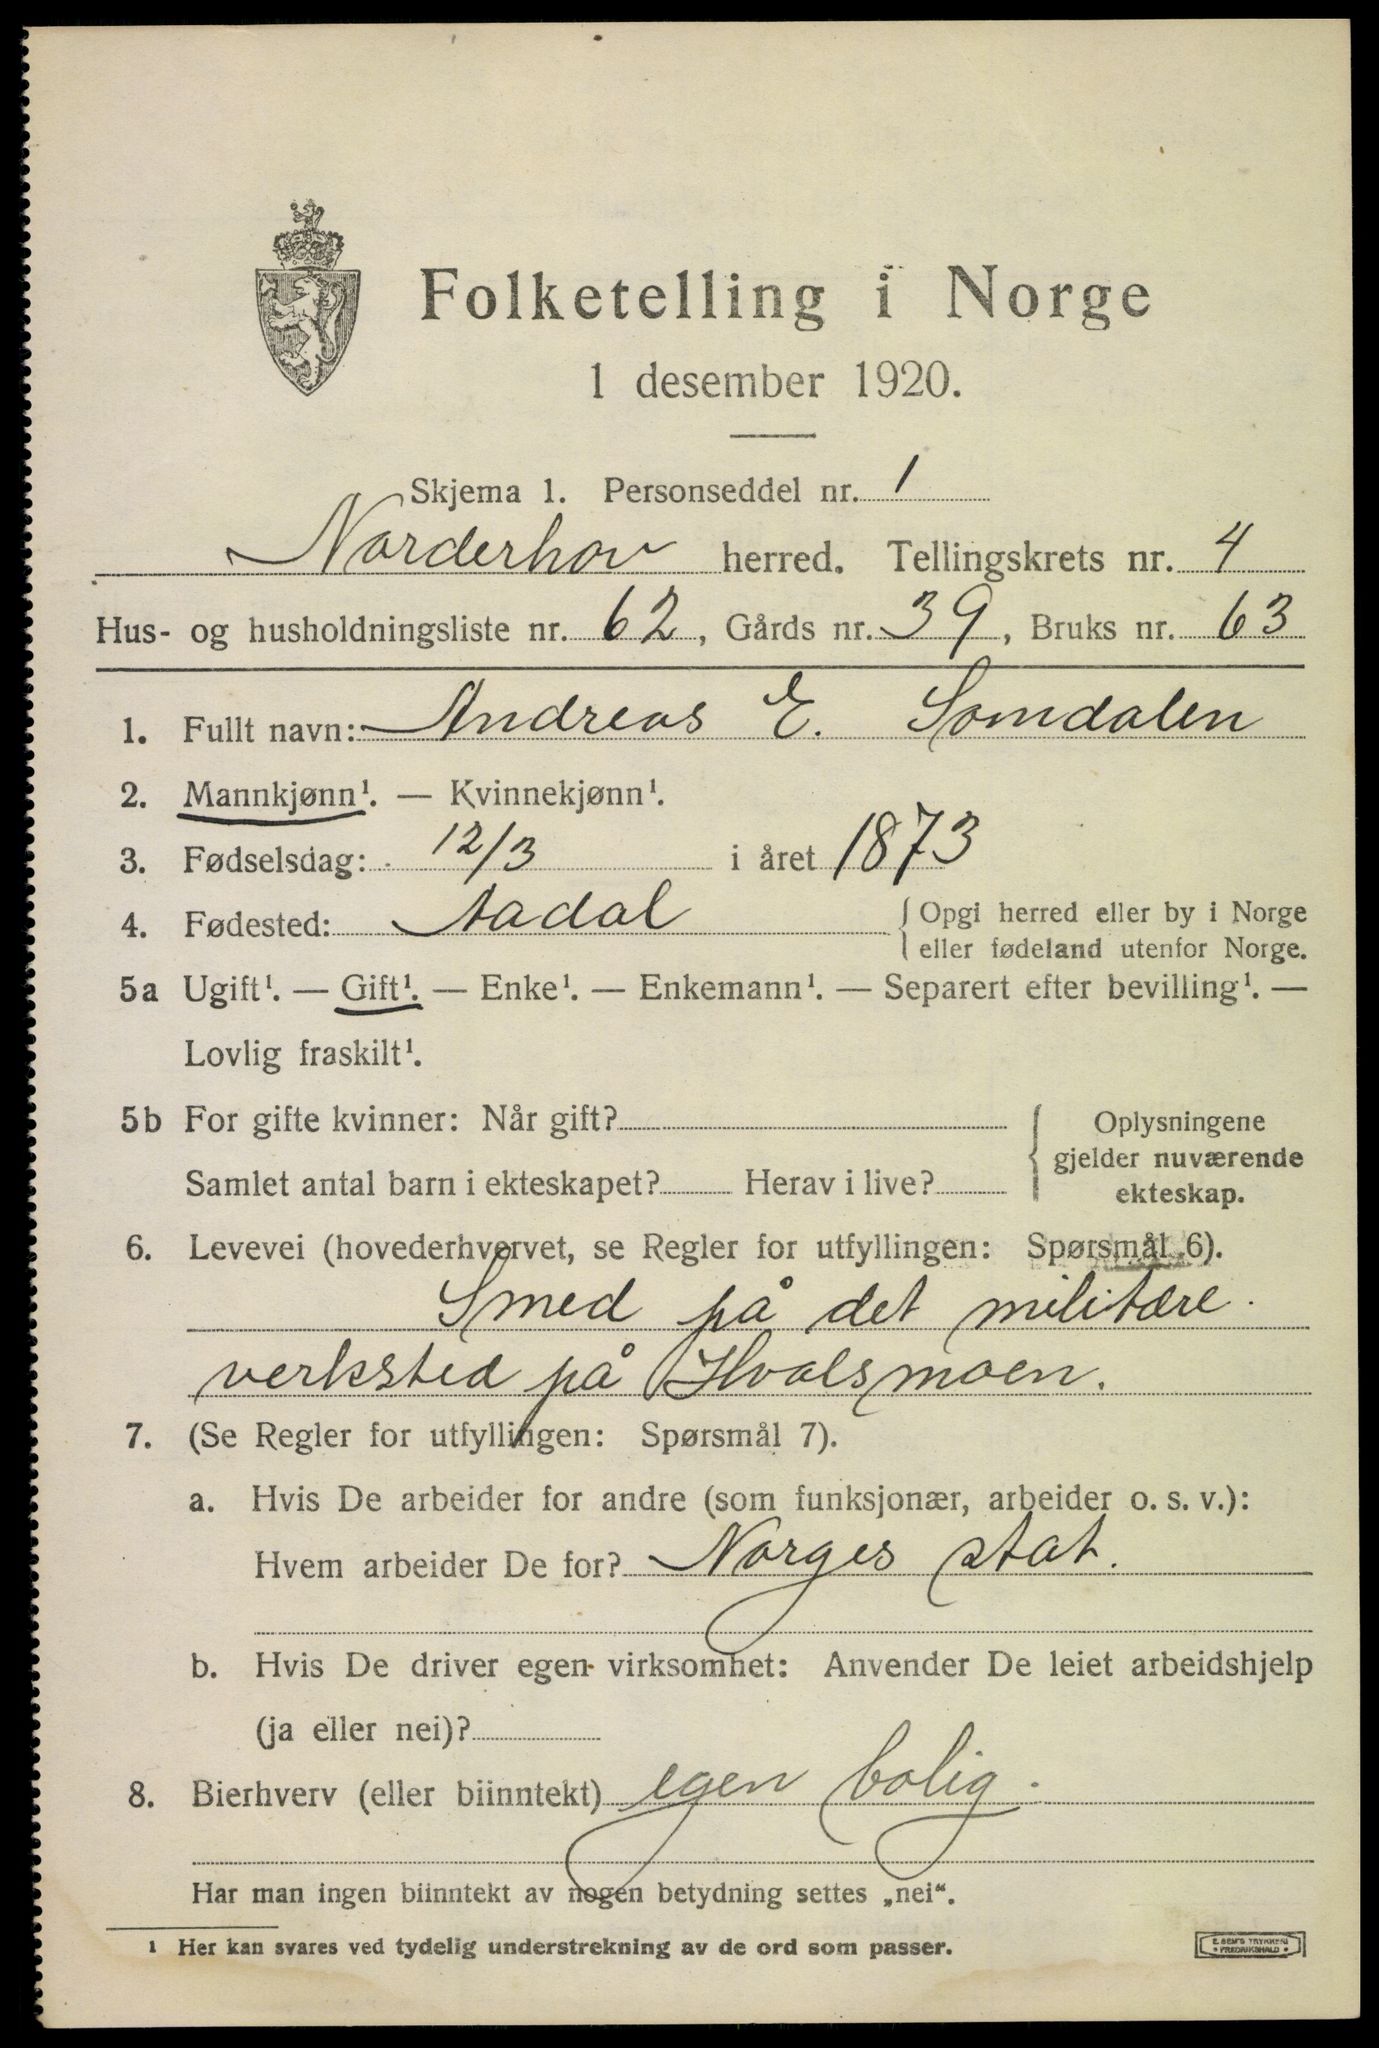 Folketelling i Norge
1 desember 1920.
Skjema 1. Personseddel nr. 1
Norderhov herred. Tellingskrets nr. 4
Hus- og husholdningsliste nr. 62, Gårds nr. 39, Bruks nr. 63
1. Fullt navn: Andreas E. Somdalen
2. Mannkjønn¹. — Kvinnekjønn¹.
3. Fødselsdag: 12/3 i året 1873
4. Fødested: Aadal { Opgi herred eller by i Norge
eller fødeland utenfor Norge.
5a Ugift¹. — Gift¹. — Enke¹. — Enkemann¹. — Separert efter bevilling¹. —
Lovlig fraskilt¹.
5b For gifte kvinner: Når gift? { Oplysningene
gjelder nuværende
Samlet antal barn i ekteskapet? Herav i live? ekteskap.
6. Levevei (hovederhvervet, se Regler for utfyllingen: Spørsmål 6).
Smed på det militære
verksted på Hvalsmoen.
7. (Se Regler for utfyllingen: Spørsmål 7).
a. Hvis De arbeider for andre (som funksjonær, arbeider o. s. v.):
Hvem arbeider De for? Norges stat.
b. Hvis De driver egen virksomhet: Anvender De leiet arbeidshjelp
(ja eller nei)?
8. Bierhverv (eller biinntekt) egen bolig.
Har man ingen biinntekt av nogen betydning settes „nei“.
¹ Her kan svares ved tydelig understrekning av de ord som passer.
E. SEM'S TRYKKERI
FREDRIKSHALD